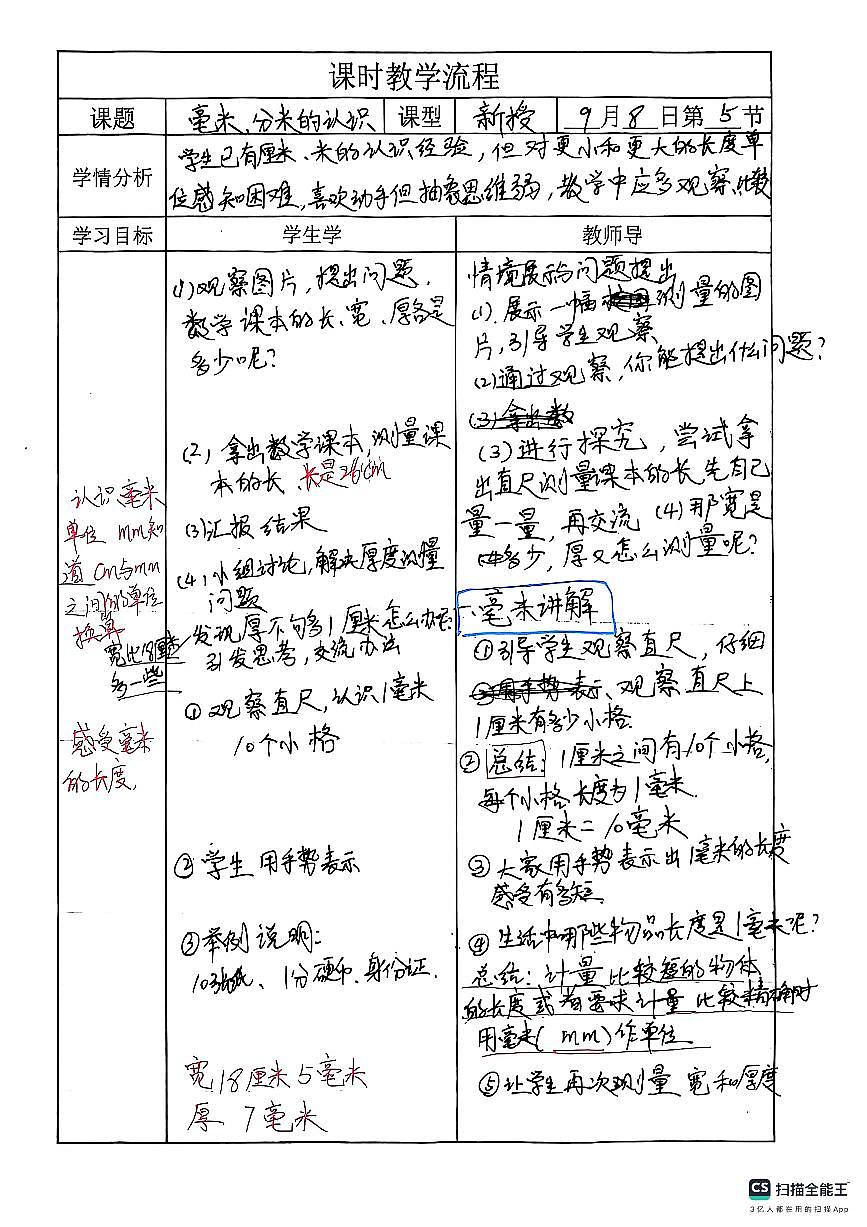 课时教学流程
课题 毫米、分米的认识 课型 新授 9月8日第5节
学情分析 学生已有厘米、米的认识经验，但对更小和更大的长度单
位感知困难，喜欢动手但抽象思维弱，教学中应多观察、比较
学习目标 学生学 教师导
认识毫米
单位 mm知
道 cm与mm
之间的单位
换算
宽比18厘米
多一些
感受毫米
的长度.
(1)观察图片，提出问题.
数学课本的长、宽、厚各是
多少呢？
(2) 拿出数学课本，测量课
本的长、长是26cm
(3)汇报结果
(4)小组讨论，解决厚度测量
问题
发现厚不够1厘米怎么办?
引发思考，交流办法
①观察直尺，认识1毫米
10个小格
②学生用手势表示
③举例说明：
10张纸、1分硬币、身份证.
宽18厘米5毫米
厚 7毫米
情境展示问题提出
(1).展示一幅测量的图
片，引导学生观察
(2)通过观察，你能提出什么问题？
(3)拿出数
(3)进行探究，尝试拿
出直尺测量课本的长，先自己
量一量，再交流 (4)那宽是
多少，厚又怎么测量呢？
一.毫米讲解
①引导学生观察直尺，仔细
②用手势表示、观察直尺上
1厘米有多少小格.
②总结：1厘米之间有10个小格，
每个小格长度为1毫米.
1厘米=10毫米
③大家用手势表示出1毫米的长度
感受有多短.
④生活中哪些物品长度是1毫米呢？
总结：计量比较短的物体
的长度或者要求计量比较精确时
用毫米(mm)作单位.
⑤让学生再次测量 宽和厚度
CS 扫描全能王
3亿人都在用的扫描App